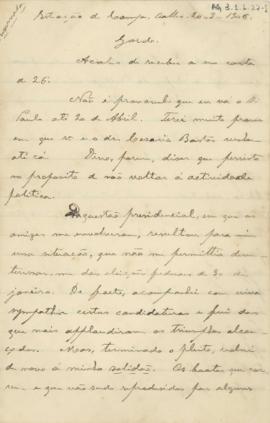 Estação de Campo Salles 20-3-1906.
Gordo.
Acabo de receber a sua carta
de 26.
Não é provavel que eu vá a S.
Paulo até 20 de Abril. Terei muito prazer
em que V. e o dr. Cesario Bastos venham
até cá. Devo, porem, dizer que persisto
no proposito de não voltar á actividade
politica.
Da questão presidencial, em que os
amigos me envolveram, resultou para mi
uma situação, que não me permittia
nas eleições federaes de 30 de
janeiro. De facto, acompanhei com viva
sympathia certas candidaturas e fui dos
que mais applaudiram os triumphos alcan-
çados. Mas, terminado o pleito, volvi
de novo á minha solidão. Os boatos que cor-
rem e que vão sendo reproduzidos por alguns